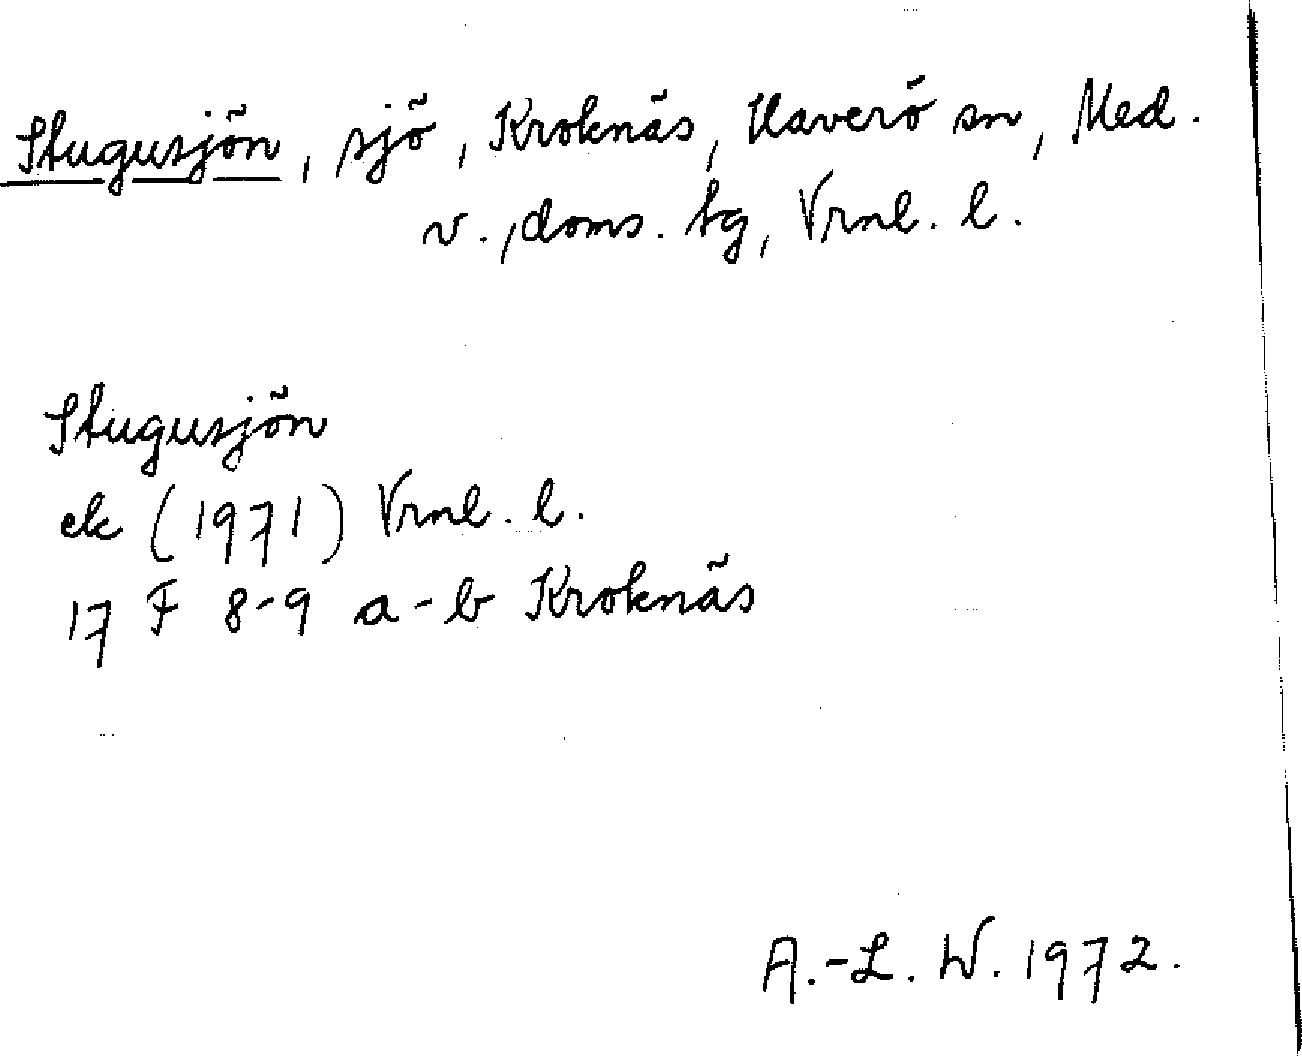 Stugusjön, sjö, Kroknäs, Haverö sn, Med.
v., doms. tg, Vrnl. l.
Stugusjön
ek (1971) Vrnl. l.
17 F 8-9 a-b Kroknäs
A.-L. W. 1972.